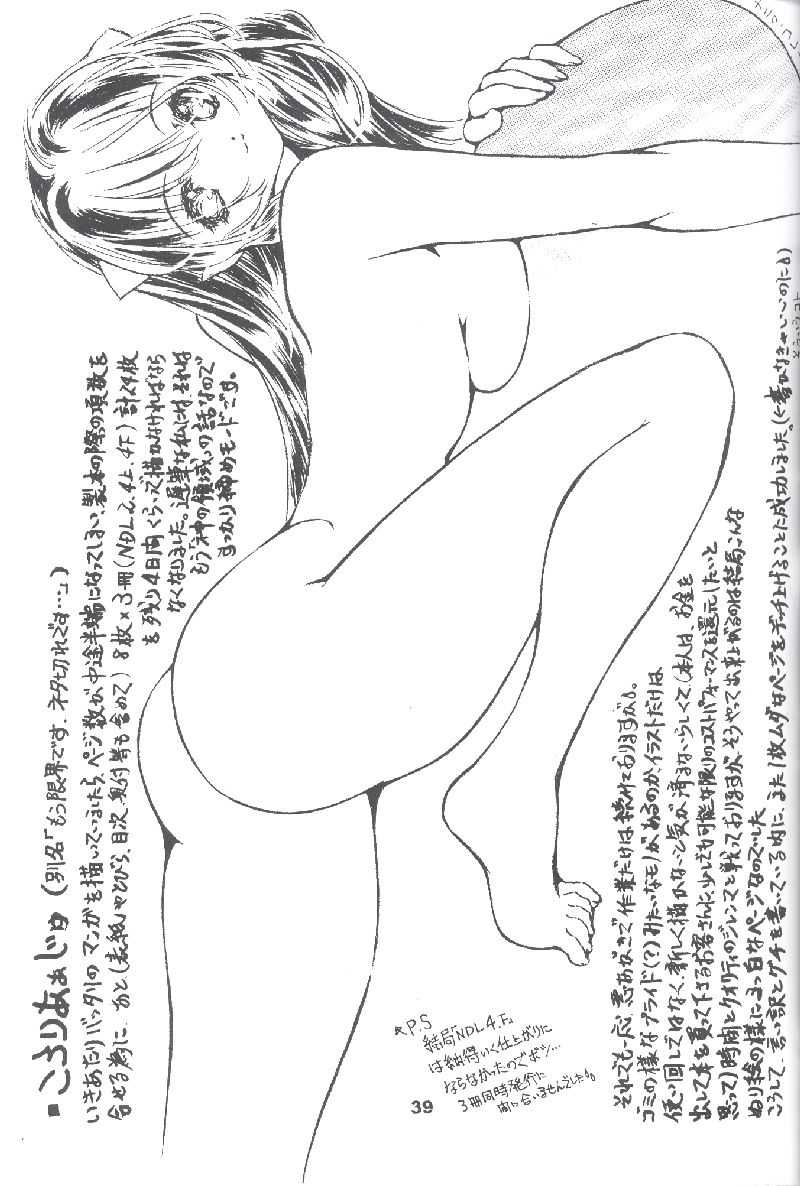 ■こらりあぁじゅ (別名「もう限界です、ネタ切れです…」)
いきあたりバッタリのマンガを描いていましたら、ページ数が中途半端になってしまい、製本の際の頁数を
合せる為に、あと(表紙やとびら、目次、奥付等も含めて) 8枚×3冊(NDL2.4上.4F) 計24枚
を残り4日間くらいで描かなければなら
なくなりました。遅筆な私には、それは
もう「神の領域」の話なので
すっかり諦めモードです。
それでも一応、悪あがきで作業だけは続けておりますが。
ゴミの様なプライド(?)みたいなモノがあるのか、イラストだけは
使い回しではなく、新しく描かないと気が済まないらしくて、(本人は、お金を
出して本を買って下さるお客さんに、少しでも可能な限りのコストパフォーマンスを還元したいと
思って) 時間とクオリティのジレンマと戦っておりますが、そうやって出来上がるのは結局こんな
ぬり絵の様にまっ白なページなのでした
こうして、言い訳とグチを書いている内に、また1枚ムダなページをデッチ上げることに成功しました。(←書かなきゃいいのに)
☆P.S
結局「NDL4.F」
は納得いく仕上がりに
ならなかったのでボツ…
3冊同時発行に
間に合いませんでした
39